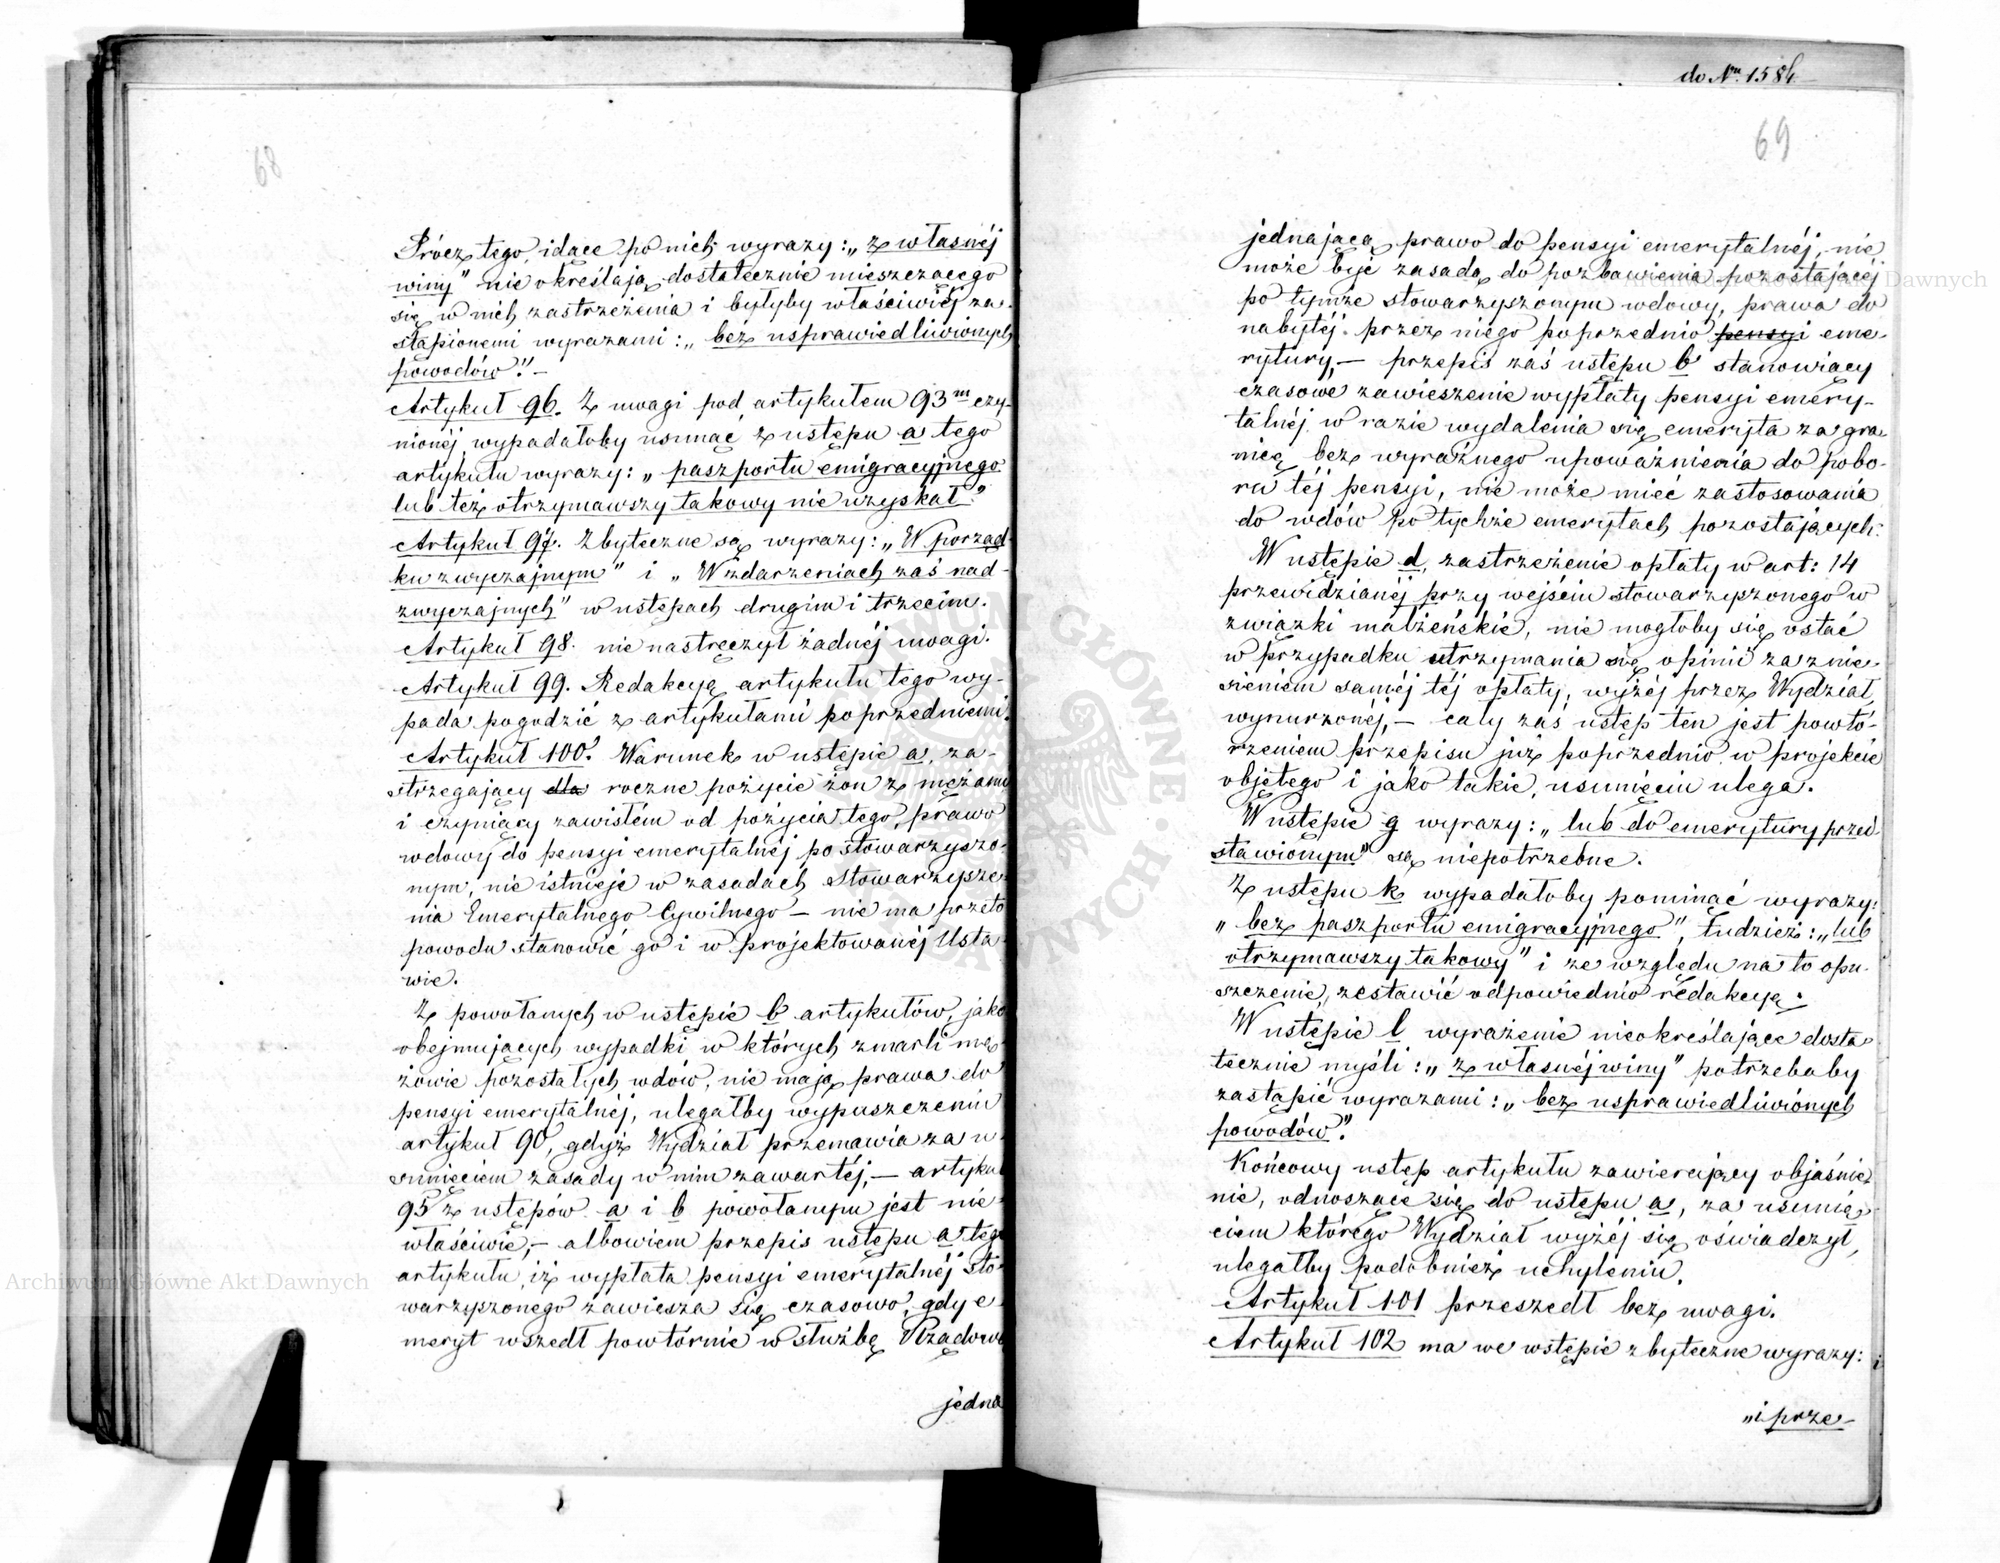 68
Prócz tego, idące po nich wyrazy: „z własnéj
winy” nie określają dostatecznie mieszczącego
się w nich zastrzeżenia i byłyby właściwiéj za-
stąpionemi wyrazami: „bez usprawiedliwionych
powodów.” —
Artykuł 96. Z uwagi pod artykułem 93m czy-
nionéj, wypadałoby usunąć z ustępu a tego
artykułu wyrazy: „paszportu emigracyjnego
lub też otrzymawszy takowy nie uzyskał.”
Artykuł 97. Zbyteczne są wyrazy: „W porząd-
ku zwyczajnym” i „W zdarzeniach zaś nad-
zwyczajnych” w ustępach drugim i trzecim.
Artykuł 98. nie nastręczył żadnéj uwagi.
Artykuł 99. Redakcyą artykułu tego wy-
pada pogodzić z artykułami poprzedniemi.
Artykuł 100. Warunek w ustępie a, za-
strzegający dla roczne pożycie żon z mężami
i czyniący zawisłém od pożycia tego, prawo
wdowy do pensyi emerytalnéj po stowarzyszo-
nym, nie istnieje w zasadach Stowarzysze-
nia Emerytalnego Cywilnego — nie ma przeto
powodu stanowić go i w projektowanéj Usta-
wie.
Z powołanych w ustępie b artykułów, jako
obejmujących wypadki w których zmarli mę-
żowie pozostałych wdów, nie mają prawa do
pensyi emerytalnéj, ulegałby wypuszczeniu
artykuł 90, gdyż Wydział przemawia za u-
sunięciem zasady w nim zawartéj, — artykuł
95 z ustępów a i b powołanym jest nie-
właściwie, — albowiem przepis ustępu a tego
artykułu, iż wypłata pensyi emerytalnéj Sto-
warzyszonego zawiesza się czasowo, gdy e-
meryt wszedł powtórnie w służbę Rządową
jedna
do Nru 1584
69
jednającą prawo do pensyi emerytalnéj, nie
może być zasadą do pozbawienia pozostającéj
po tymże stowarzyszonym wdowy, prawa do
nabytéj przez niego poprzednio pensyi eme-
rytury, — przepis zaś ustępu b stanowiący
czasowe zawieszenie wypłaty pensyi emery-
talnéj w razie wydalenia się emeryta za gra-
nicę bez wyraźnego upoważnienia do pobo-
ru téj pensyi, nie może mieć zastosowania
do wdów po tychże emerytach pozostających.
W ustępie d, zastrzeżenie opłaty w art: 14
przewidzianéj przy wejściu stowarzyszonego w
związki małżeńskie, nie mogłoby się ostać
w przypadku utrzymania się opinii za znie-
sieniem saméj téj opłaty, wyżéj przez Wydział
wynurzonéj, — cały zaś ustęp ten jest powtó-
rzeniem przepisu już poprzednio w projekcie
objętego i jako takie, usunięciu ulega.
W ustępie g wyrazy: „lub do emerytury przed-
stawionym” są niepotrzebne.
Z ustępu k wypadałoby pominąć wyrazy:
„bez paszportu emigracyjnego”, tudzież: „lub
otrzymawszy takowy” i ze względu na to opu-
szczenie, zestawić odpowiednio redakcyą.
W ustępie l wyrażenie nieokreślające dosta-
tecznie myśli: „z własnéj winy” potrzebaby
zastąpić wyrazami: „bez usprawiedliwionych
powodów”.
Końcowy ustęp artykułu zawierający objaśnie-
nie, odnoszące się do ustępu a, za usunię-
ciem którego Wydział wyżéj się oświadczył,
ulegałby podobnież uchyleniu.
Artykuł 101 przeszedł bez uwagi.
Artykuł 102 ma we wstępie zbyteczne wyrazy:
„i prze-
Archiwum Główne Akt Dawnych
Archiwum Główne Akt Dawnych
ARCHIWUM GŁÓWNE AKT DAWNYCH